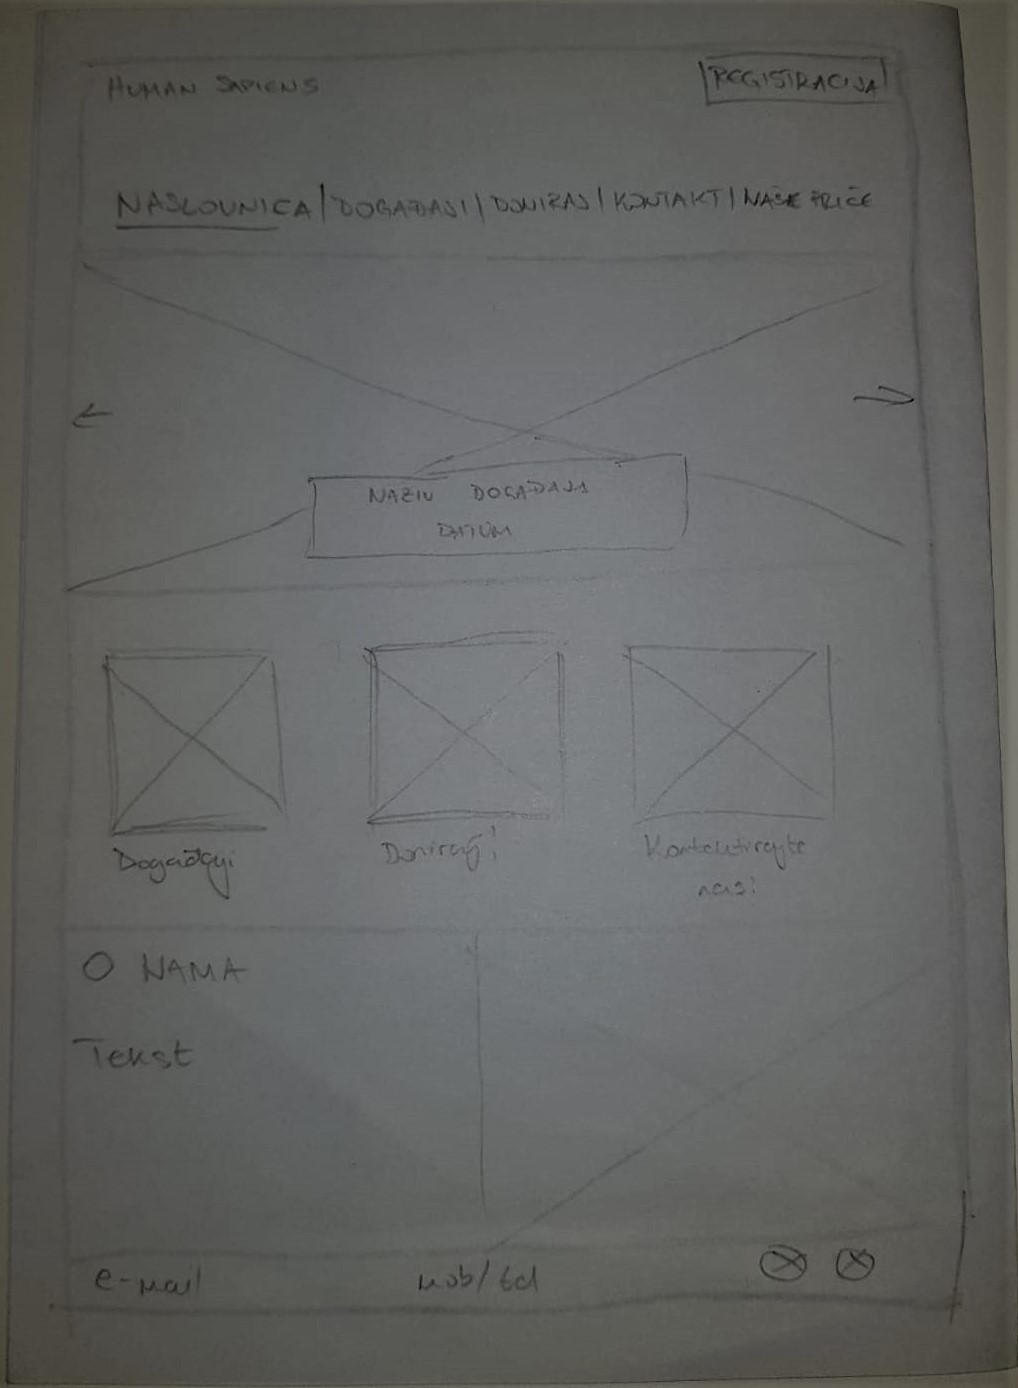 HUMAN SAPIENS
REGISTRACIJA
NASLOVNICA | DOGAĐAJI | DONIRAJ | KONTAKT | NAŠE PRIČE
NAZIV DOGAĐAJA
DATUM
Događaji
Doniraj!
Kontaktirajte
nas!
O NAMA
Tekst
e-mail
mob/tel